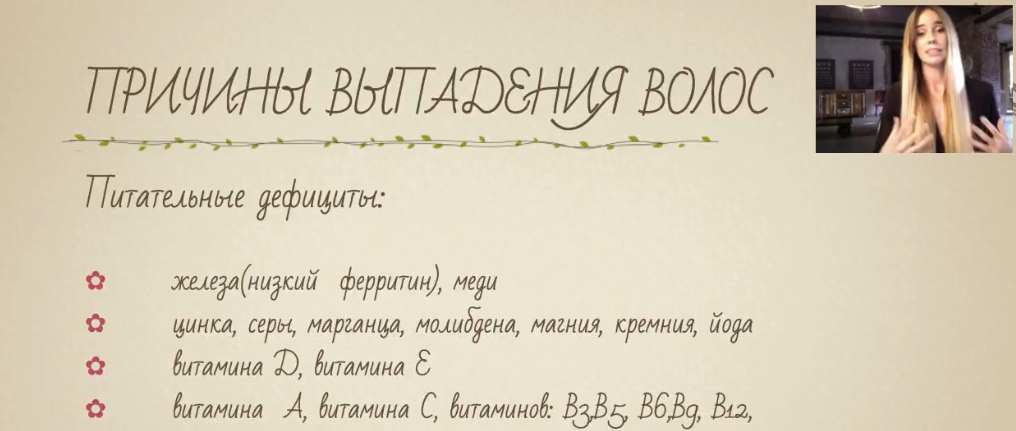 ПРИЧИНЫ ВЫПАДЕНИЯ ВОЛОС
Питательные дефициты:
железа(низкий ферритин), меди
цинка, серы, марганца, молибдена, магния, кремния, йода
витамина D, витамина E
витамина А, витамина С, витаминов: В3,В5, В6,В9, В12,